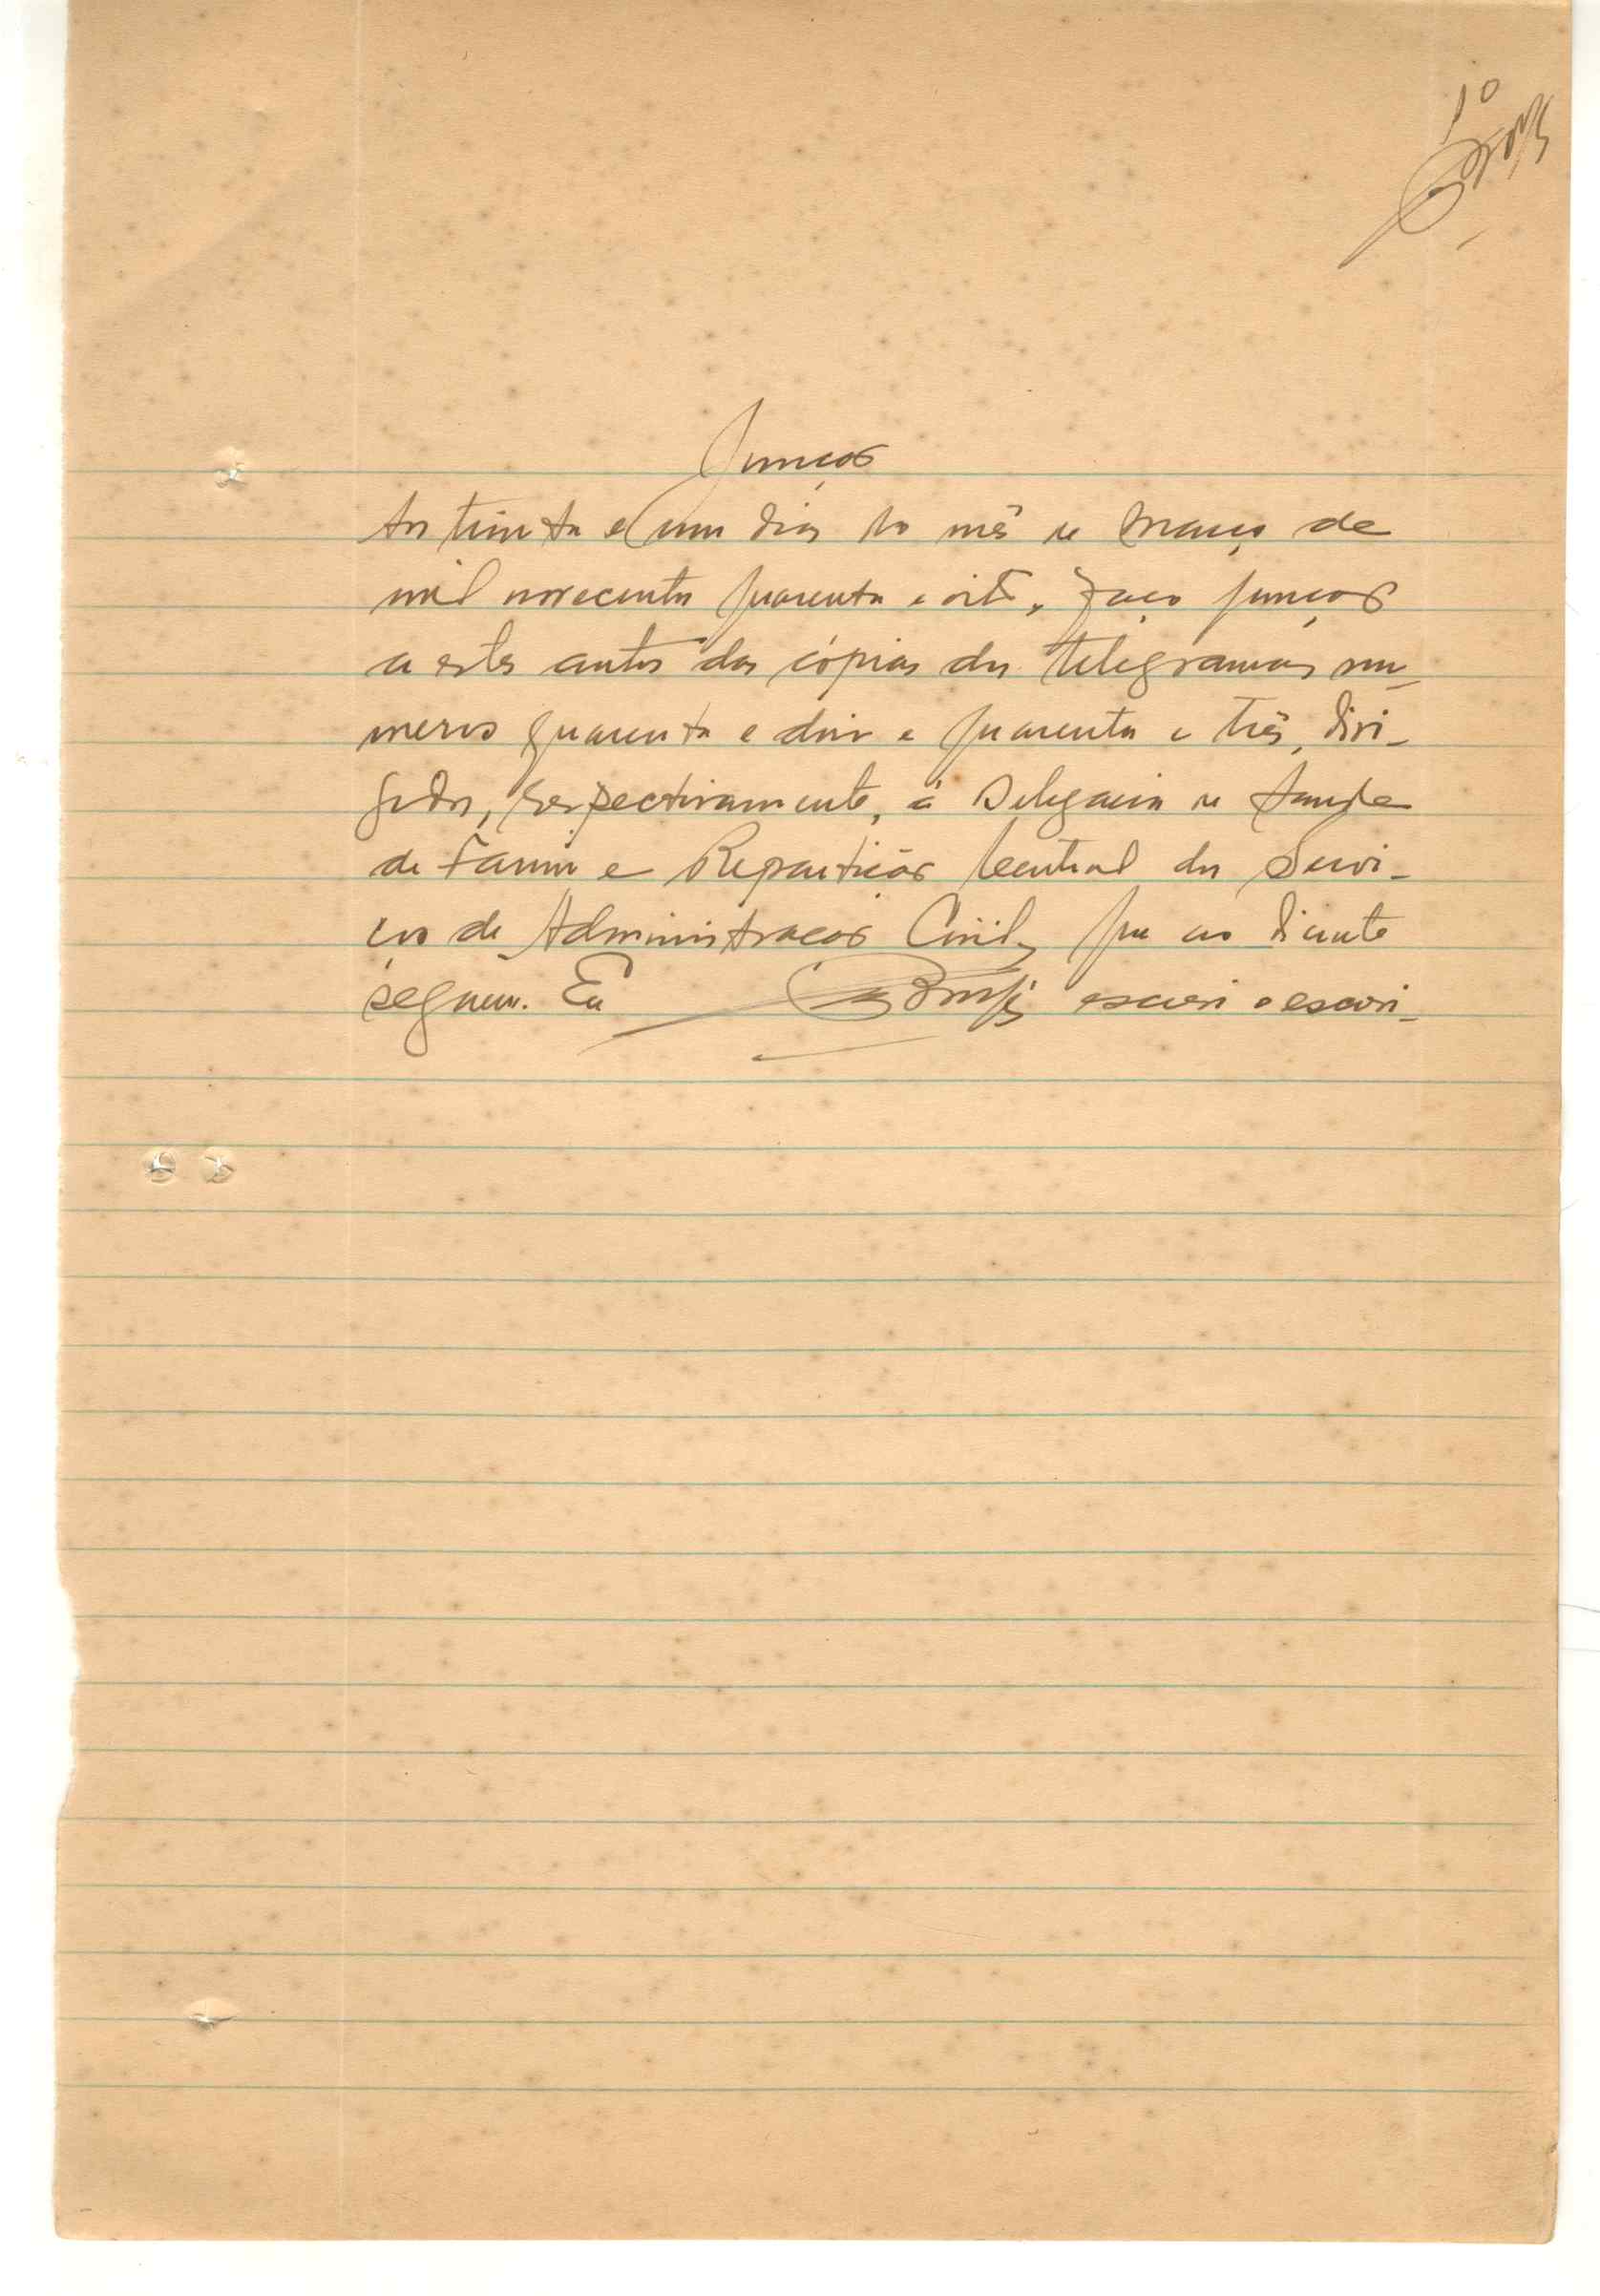 Junção
Aos trinta e um dias do mês de Março de
mil novecentos quarenta e oito, faço junção
a estes autos das cópias dos telegramas nu-
meros quarenta e dois e quarenta e três, diri-
gidos, respectivamente, á Delegacia de Saude
de Farim e Repartição Central dos Servi-
ços de Administração Civil, que ao diante
seguem. Eu escrivão o escrevi-